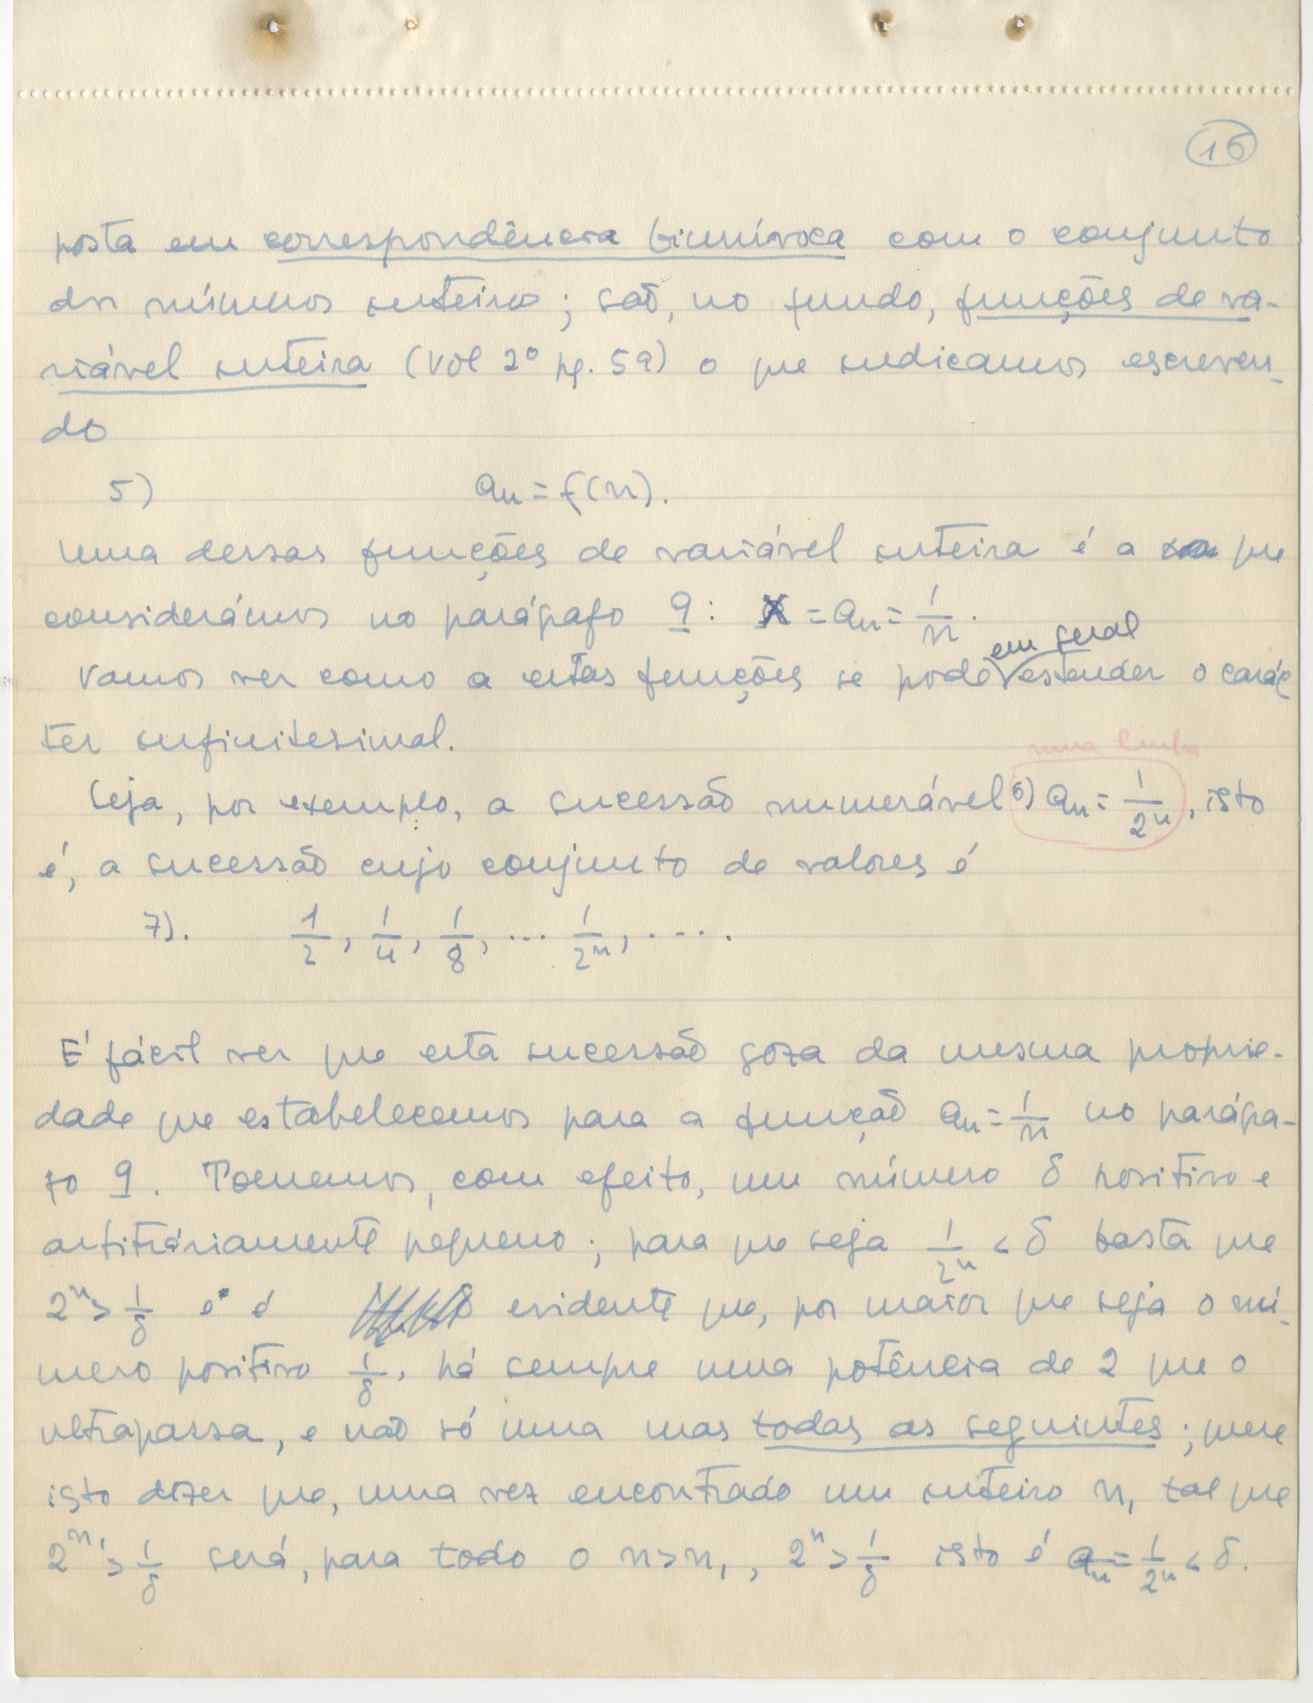 16
posta em correspondência biunívoca com o conjunto
dos números inteiros; são, no fundo, funções de va-
riável inteira (vol 2º pg. 59) o que indicamos escreven-
do
5) aₙ = f(n).
uma dessas funções de variável inteira é a que
considerámos no parágrafo 9: = aₙ = 1/n.
em geral
Vamos ver como a estas funções se pode estender o carác
ter infinitesimal.
numa linha
Seja, por exemplo, a sucessão numerável 6) aₙ = 1/2ⁿ, isto
é, a sucessão cujo conjunto de valores é
7). 1/2, 1/4, 1/8, ... 1/2ⁿ, ....
É fácil ver que esta sucessão goza da mesma proprie-
dade que estabelecemos para a função aₙ = 1/n no parágra-
fo 9. Tomemos, com efeito, um número δ positivo e
arbitràriamente pequeno; para que seja 1/2ⁿ < δ basta que
2ⁿ > 1/δ e é evidente que, por maior que seja o nú-
mero positivo 1/δ, há sempre uma potência de 2 que o
ultrapassa, e não só uma mas todas as seguintes; quere
isto dizer que, uma vez encontrado um inteiro n₁ tal que
2ⁿ¹ > 1/δ será, para todo o n > n₁, 2ⁿ > 1/δ isto é aₙ = 1/2ⁿ < δ.